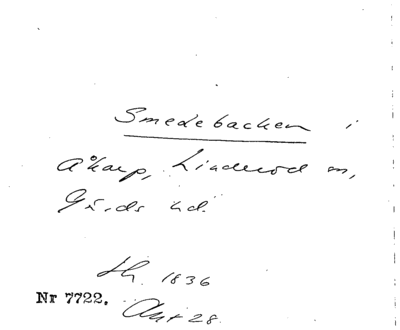 Smedebacken i
Åkarp, Linderöd sn,
Gärds hd.
Lh. 1836
Nr 7722. Akt 28